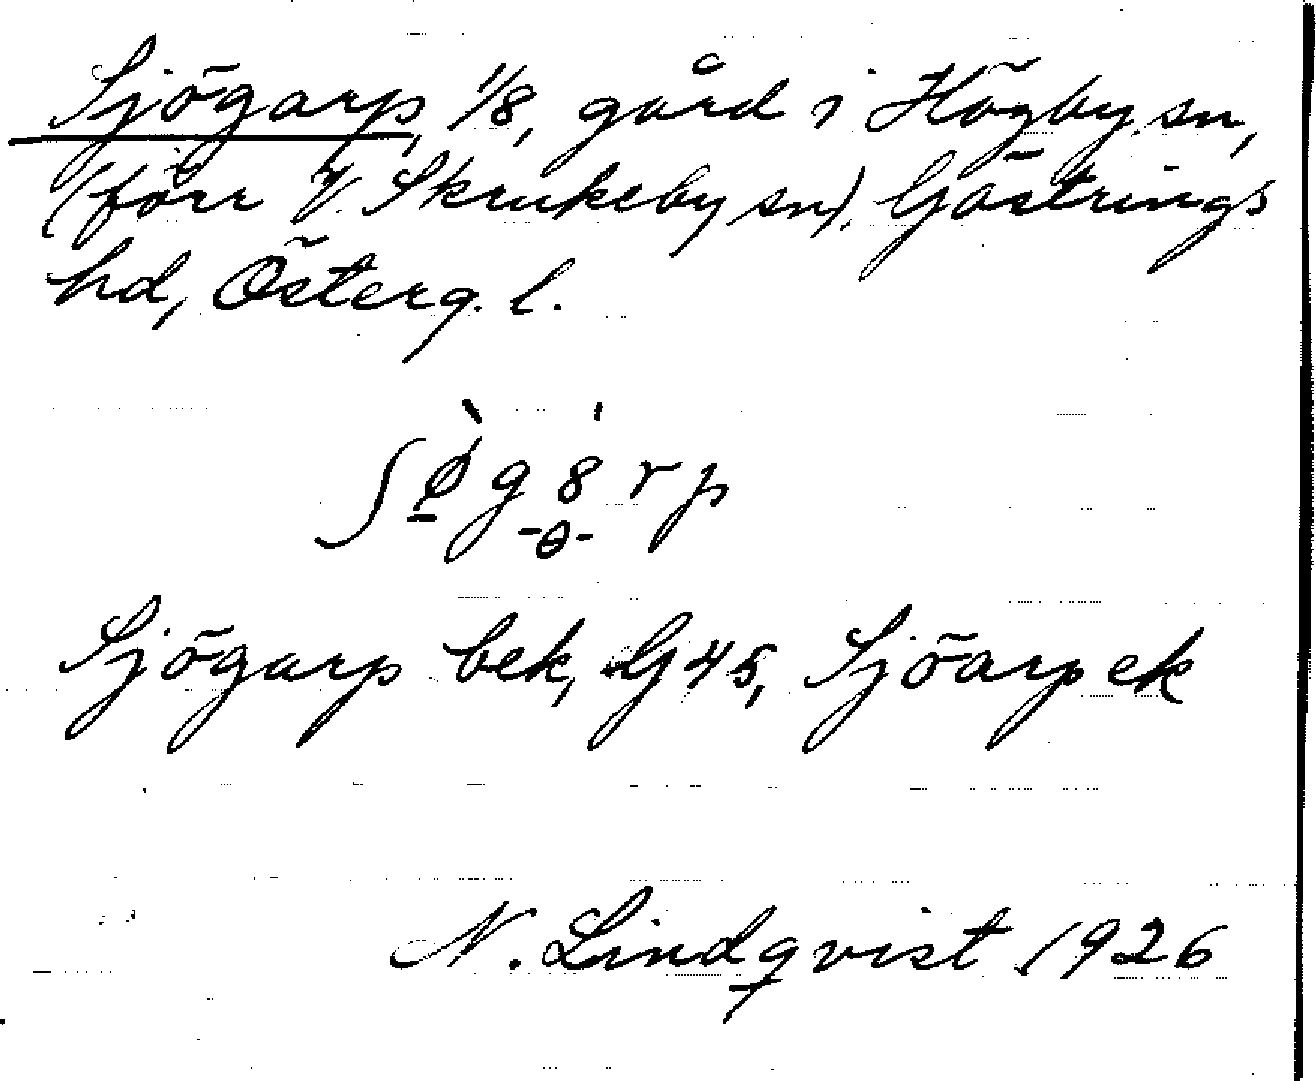 Sjögarp, 1/8, gård i Högby sn,
(förr V. Skrukeby sn), Göstrings
hd, Österg. l.
Sjögarp bek, GJ 45, Sjöarp ek
N. Lindqvist 1926